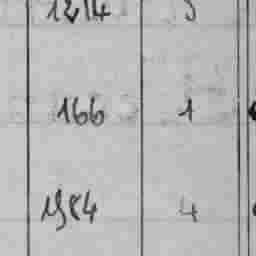 1214 5
166 1
1984 4